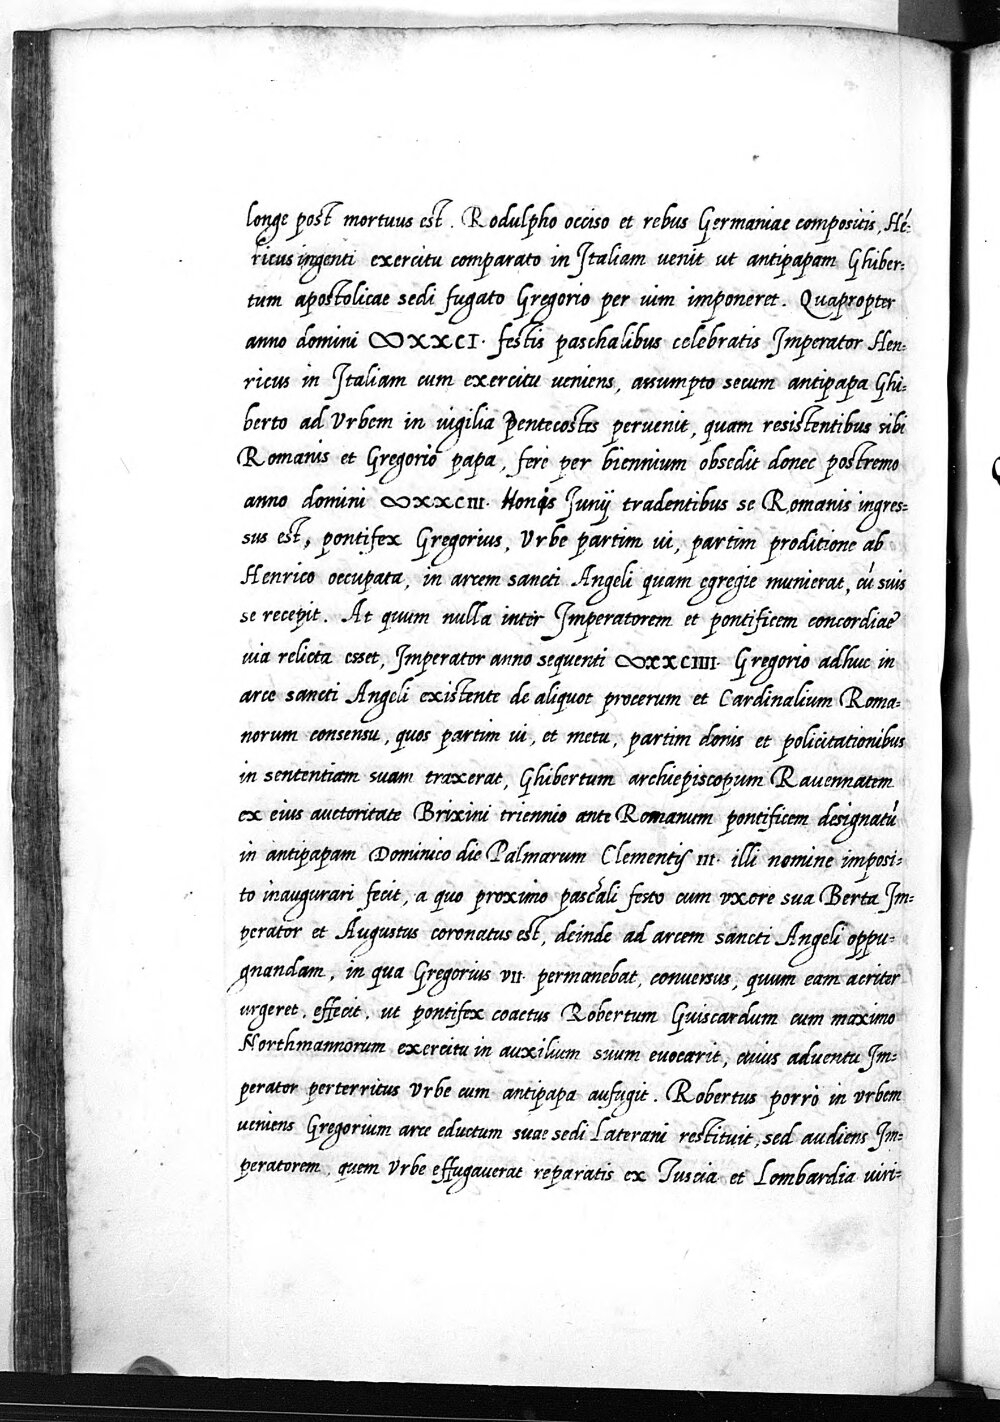 longe post mortuus est. Rodulpho occiso et rebus Germaniae compositis, Hé-
ricus ingenti exercitu comparato in Italiam uenit ut antipapam Ghiber-
tum apostolicae sedi fugato Gregorio per uim imponeret. Quapropter
anno domini ∞XXCI. festis paschalibus celebratis Imperator Hen-
ricus in Italiam cum exercitu ueniens, assumpto secum antipapa Ghi-
berto ad Vrbem in uigilia Pentecostes peruenit, quam resistentibus sibi
Romanis et Gregorio papa, fere per biennium obsedit donec postremo
anno domini ∞XXCIII. Nonis Junij tradentibus se Romanis ingres-
sus est, pontifex Gregorius, Vrbe partim ui, partim proditione ab
Henrico occupata, in arcem sancti Angeli quam egregie munierat, cú suis
se recepit. At quum nulla inter Imperatorem et pontificem concordiae
uia relicta esset, Imperator anno sequenti ∞XXCIIII. Gregorio adhuc in
arce sancti Angeli existente de aliquot procerum et Cardinalium Roma-
norum consensu, quos partim ui, et metu, partim donis et policitationibus
in sententiam suam traxerat, Ghibertum archiepiscopum Rauennatem
ex eius auctoritate Brixini triennio ante Romanum pontificem designatú
in antipapam Dominico die Palmarum Clementis III. illi nomine imposi-
to inaugurari fecit, a quo proximo pascali festo cum vxore sua Berta Im-
perator et Augustus coronatus est, deinde ad arcem sancti Angeli oppu-
gnandam, in qua Gregorius VII. permanebat, conuersus, quum eam acriter
urgeret, effecit, ut pontifex coactus Robertum Guiscardum cum maximo
Northmannorum exercitu in auxilium suum euocarit, cuius aduentu Im-
perator perterritus Vrbe cum antipapa aufugit. Robertus porrò in vrbem
ueniens Gregorium arce eductum suae sedi Laterani restituit, sed audiens Im-
peratorem, quem Vrbe effugauerat reparatis ex Tuscia et Lombardia uiri-